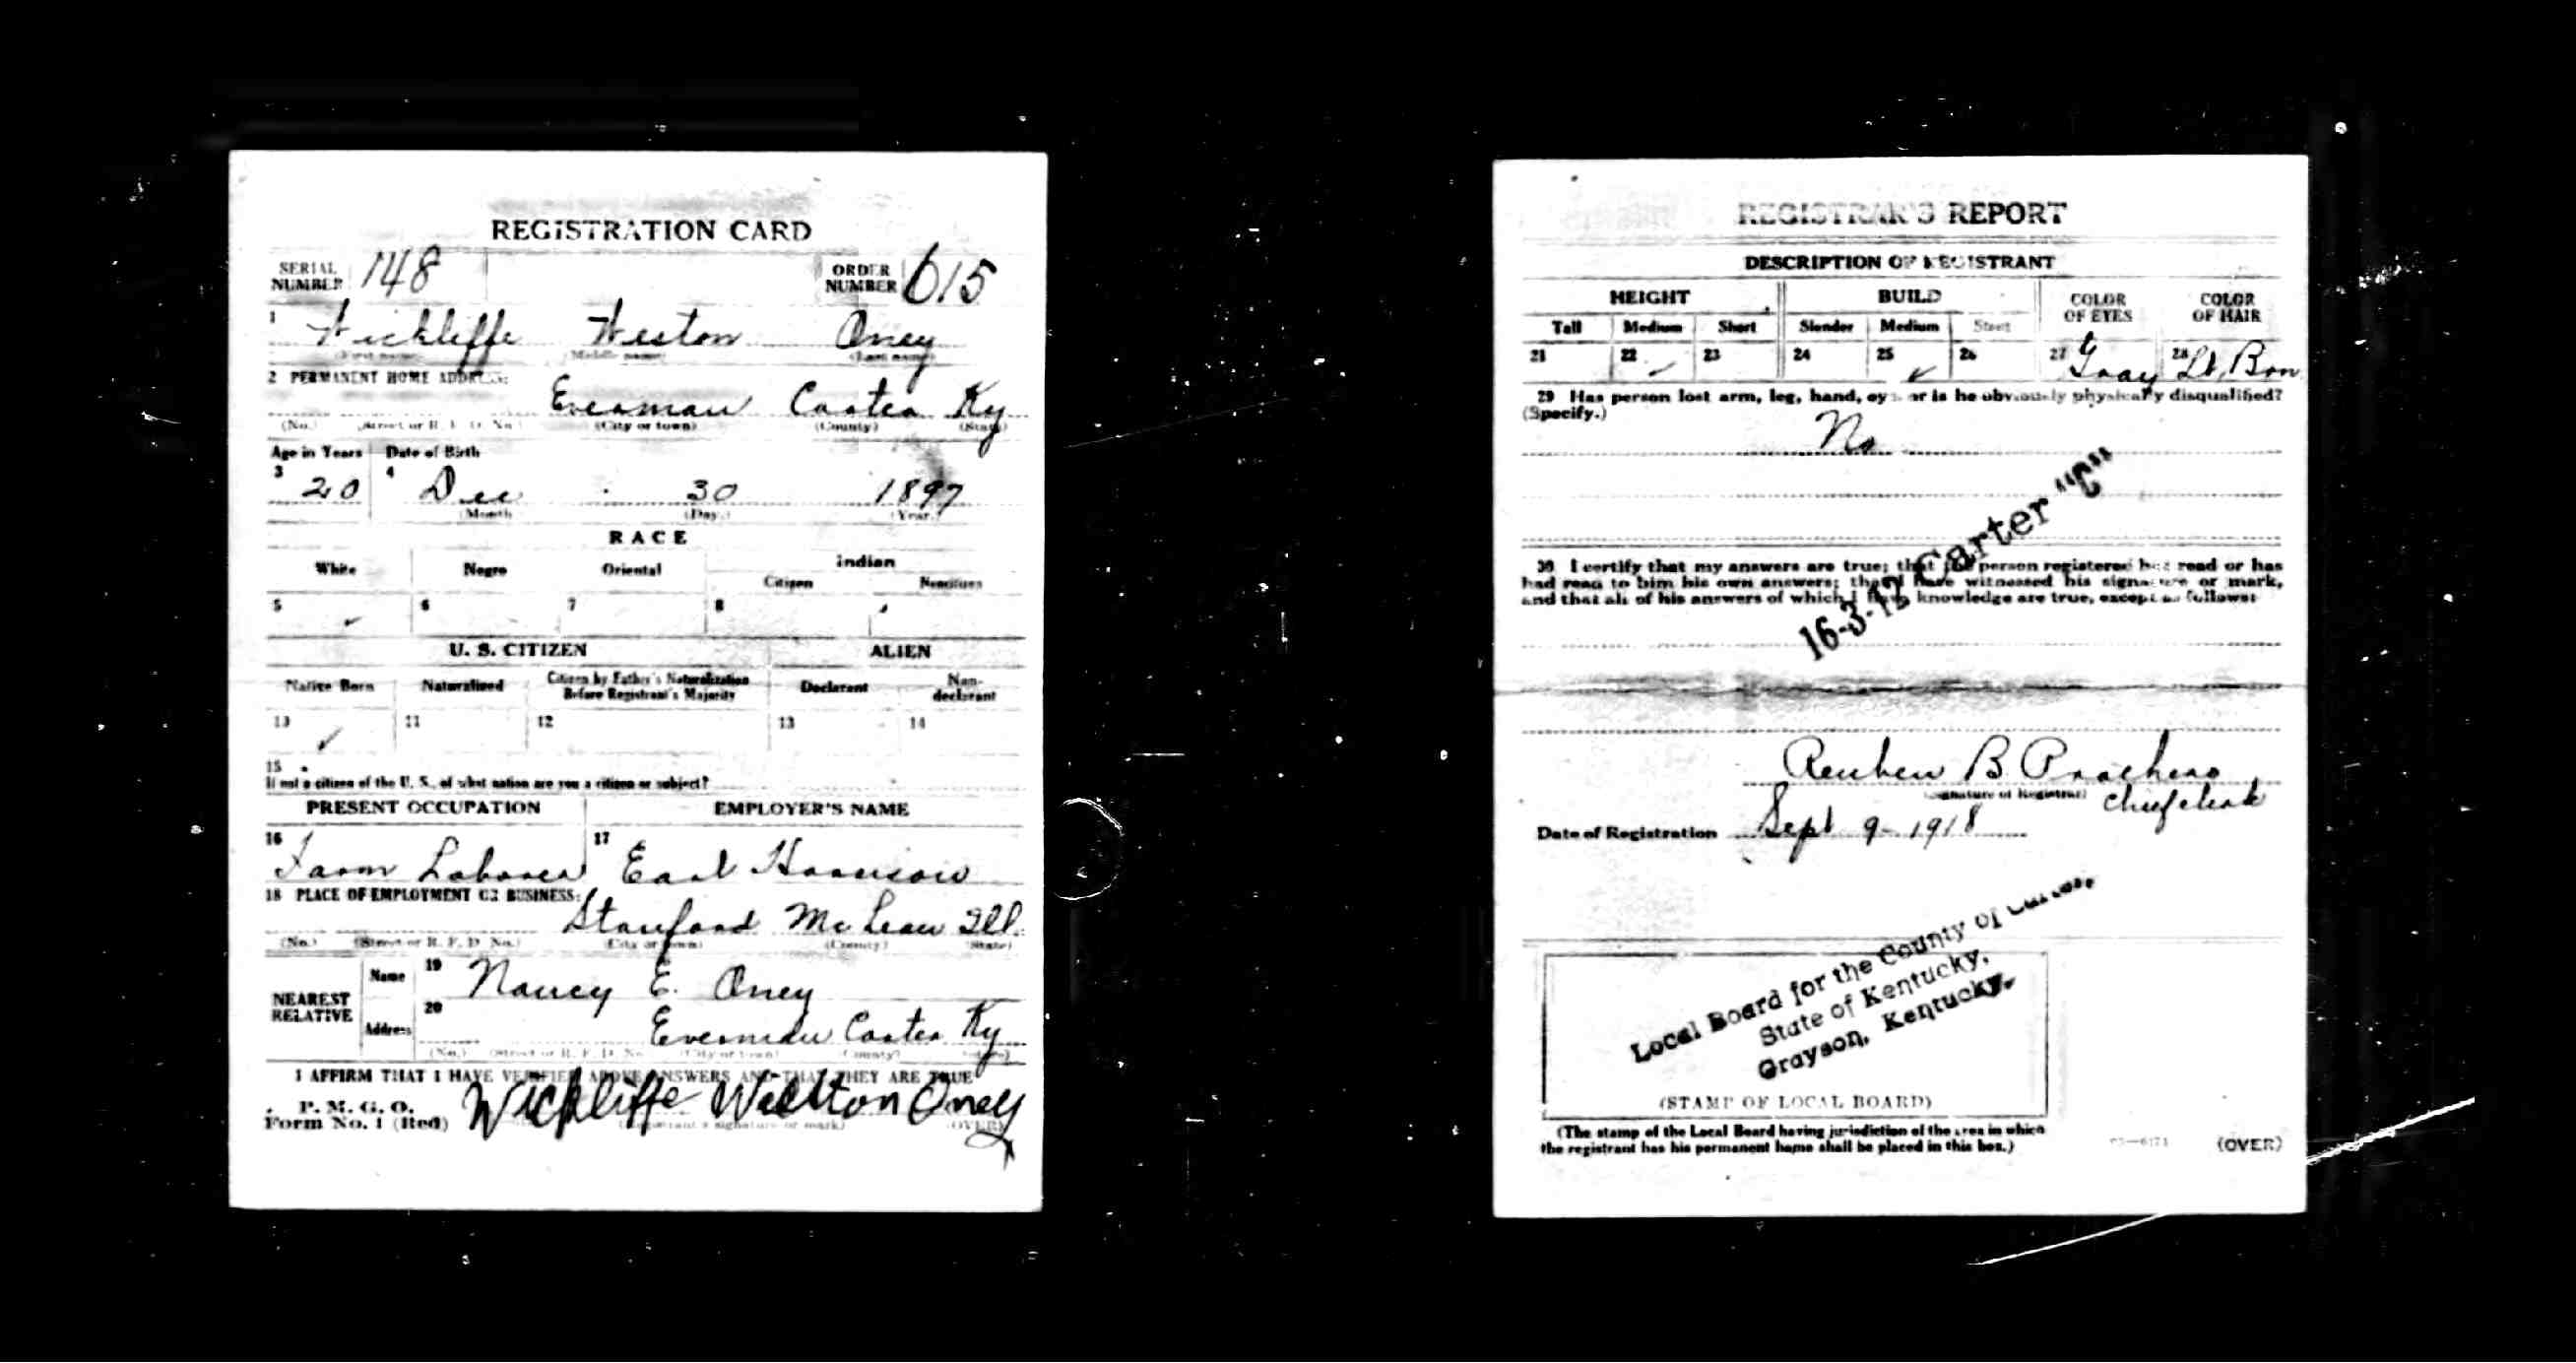 REGISTRATION CARD
SERIAL NUMBER 148 ORDER NUMBER 615
1 Wickliffe Weston Oney
(First name) (Middle name) (Last name)
2 PERMANENT HOME ADDRESS:
Everman Carter Ky
(No.) (Street or R. F. D. No.) (City or town) (County) (State)
Age in Years Date of Birth
3 20 4 Dec 30 1897
(Month) (Day.) (Year.)
RACE
White Negro Oriental Indian
Citizen Noncitizen
5 ✓ 6 7 8
U. S. CITIZEN ALIEN
Native Born Naturalized Citizen by Father's Naturalization Before Registrant's Majority Declarant Non-declarant
10 ✓ 11 12 13 14
15
If not a citizen of the U. S., of what nation are you a citizen or subject?
PRESENT OCCUPATION EMPLOYER'S NAME
16 Farm Laborer 17 Earl Harrison
18 PLACE OF EMPLOYMENT OR BUSINESS:
Stanford McLean Ill.
(No.) (Street or R. F. D. No.) (City or town) (County) (State)
NEAREST RELATIVE Name 19 Nancy E. Oney
Address 20 Everman Carter Ky
(No.) (Street or R. F. D. No.) (City or town) (County) (State)
I AFFIRM THAT I HAVE VERIFIED ABOVE ANSWERS AND THAT THEY ARE TRUE
P. M. G. O.
Form No. 1 (Red) Wickliffe Wellton Oney
(Registrant's signature or mark) (OVER)
REGISTRAR'S REPORT
DESCRIPTION OF REGISTRANT
HEIGHT BUILD COLOR OF EYES COLOR OF HAIR
Tall Medium Short Slender Medium Stout
21 22 ✓ 23 24 25 ✓ 26 27 Gray 28 Lt. Brn
29 Has person lost arm, leg, hand, eye, or is he obviously physically disqualified?
(Specify.)
No
16-3-12 Carter "C"
30 I certify that my answers are true; that the person registered has read or has
had read to him his own answers; that I have witnessed his signature or mark,
and that all of his answers of which I have knowledge are true, except as follows:
Reuben B.
(Signature of Registrar) Chief clerk
Date of Registration Sept 9-1918
Local Board for the County of Carter
State of Kentucky,
Grayson, Kentucky.
(STAMP OF LOCAL BOARD)
(The stamp of the Local Board having jurisdiction of the area in which
the registrant has his permanent home shall be placed in this box.)
(OVER)